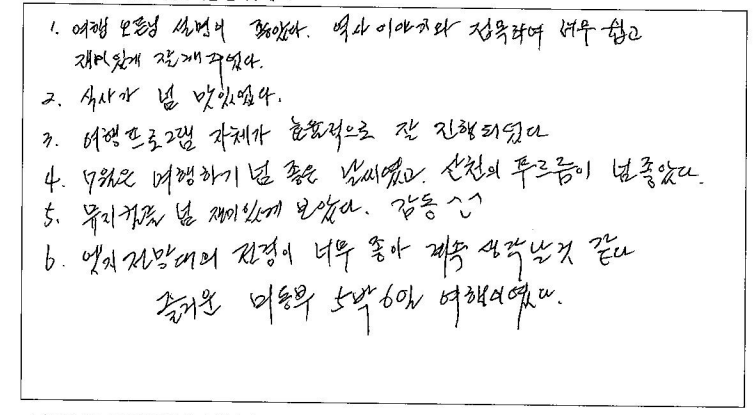 1. 여행 모든님 설명이 좋았다. 역사 이야기와 접목하여 너무 쉽고
재미있게 잘 해주었다.
2. 식사가 넘 맛있었다.
3. 여행프로그램 자체가 효율적으로 잘 진행되었다
4. 7월은 여행하기 넘 좋은 날씨였고. 산천의 푸르름이 넘 좋았다.
5. 뮤지컬을 넘 재미있게 보았다. 감동 ^^
6. 엣지 전망대의 전경이 너무 좋아 계속 생각날것 같다
즐거운 미동부 5박 6일 여행이였다.